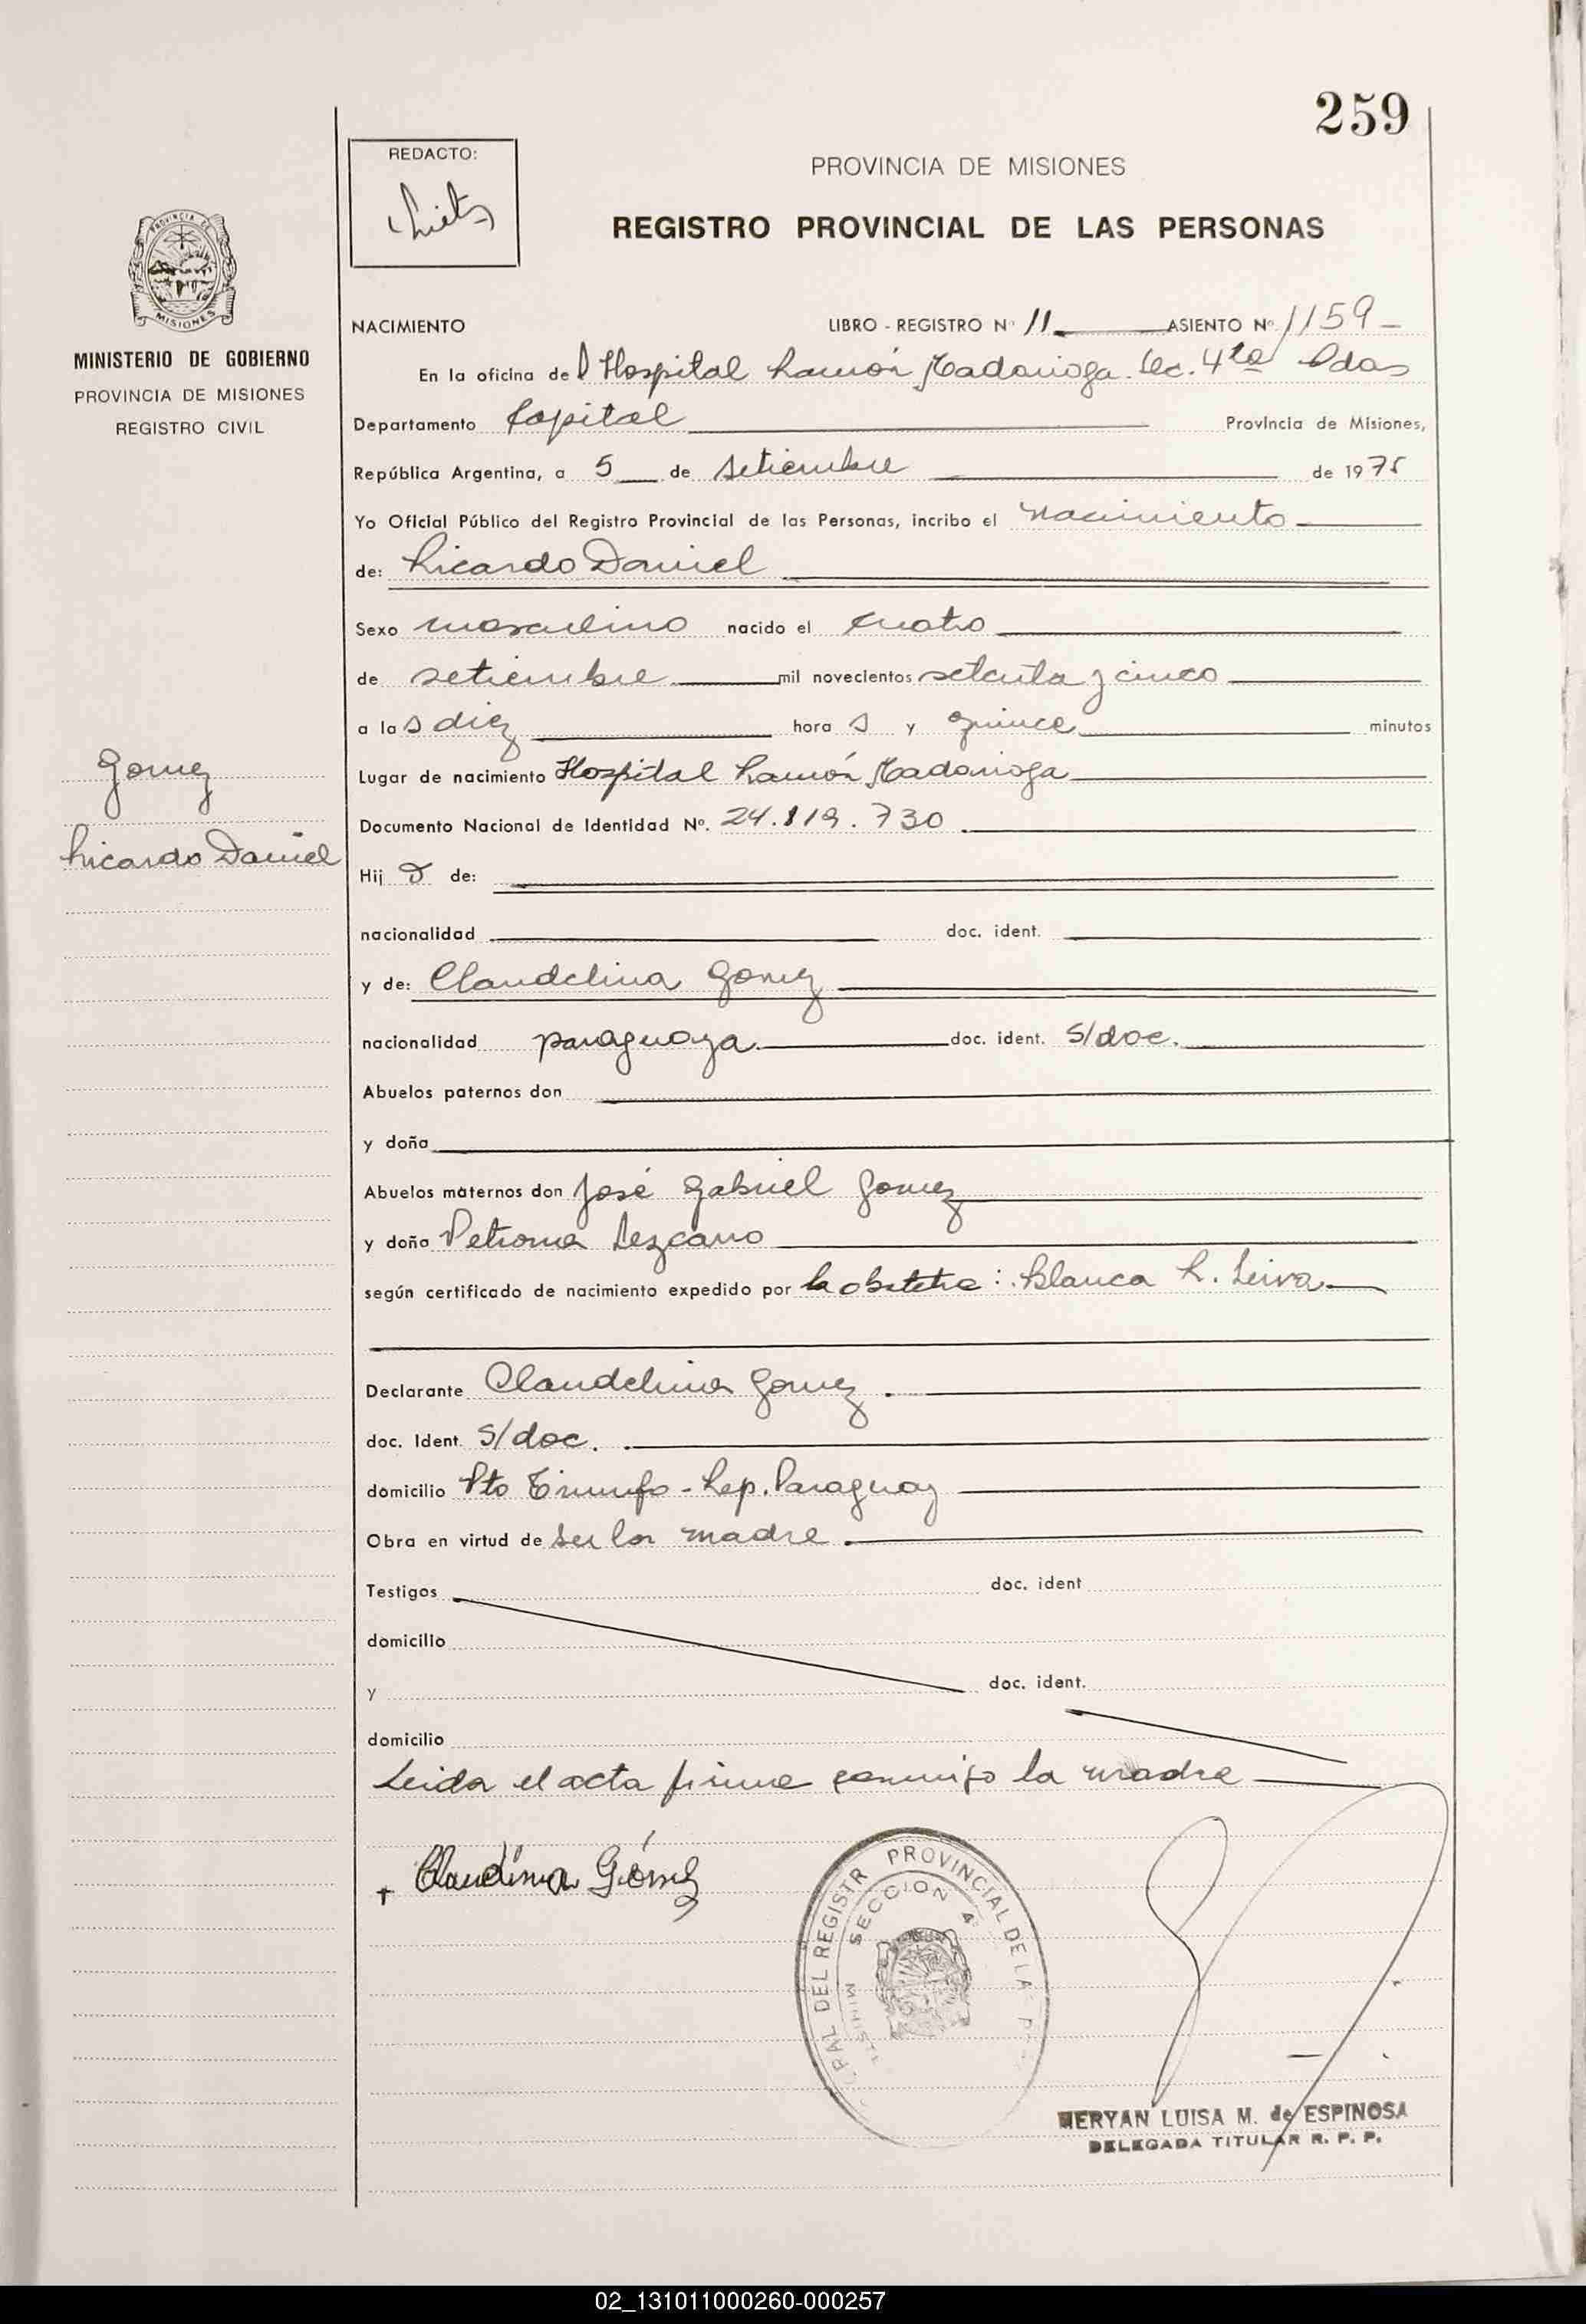 259
REDACTO:
PROVINCIA DE MISIONES
REGISTRO PROVINCIAL DE LAS PERSONAS
PROVINCIA DE
MISIONES
MINISTERIO DE GOBIERNO
PROVINCIA DE MISIONES
REGISTRO CIVIL
NACIMIENTO LIBRO - REGISTRO Nº 11 ASIENTO Nº 1159
En la oficina del Hospital Ramón Madariaga. Sec. 4ta Pdas
Departamento Capital Provincia de Misiones,
República Argentina, a 5 de Setiembre de 1975
Yo Oficial Público del Registro Provincial de las Personas, incribo el nacimiento
de: Ricardo Daniel
Sexo masculino nacido el cuatro
de setiembre mil novecientos setenta y cinco
a las diez horas y quince minutos
Gomez
Ricardo Daniel
Lugar de nacimiento Hospital Ramón Madariaga
Documento Nacional de Identidad Nº. 24.819.730
Hijo de:
nacionalidad doc. ident.
y de: Claudelina Gomez
nacionalidad paraguaya doc. ident. S/doc.
Abuelos paternos don
y doña
Abuelos maternos don José Gabriel Gomez
y doña Petrona Lezcano
según certificado de nacimiento expedido por la obstetra: Blanca R. Leiva
Declarante Claudelina Gomez.
doc. Ident. S/doc.
domicilio Pto Triunfo - Rep. Paraguay
Obra en virtud de ser la madre
Testigos doc. ident
domicilio
y doc. ident.
domicilio
Leida el acta firma conmigo la madre
+ Claudina Gómez
PAL DEL REGISTR PROVINCIAL DE LA P
SECCION 4ª
MERYAN LUISA M. de ESPINOSA
DELEGADA TITULAR R. P. P.
02_131011000260-000257